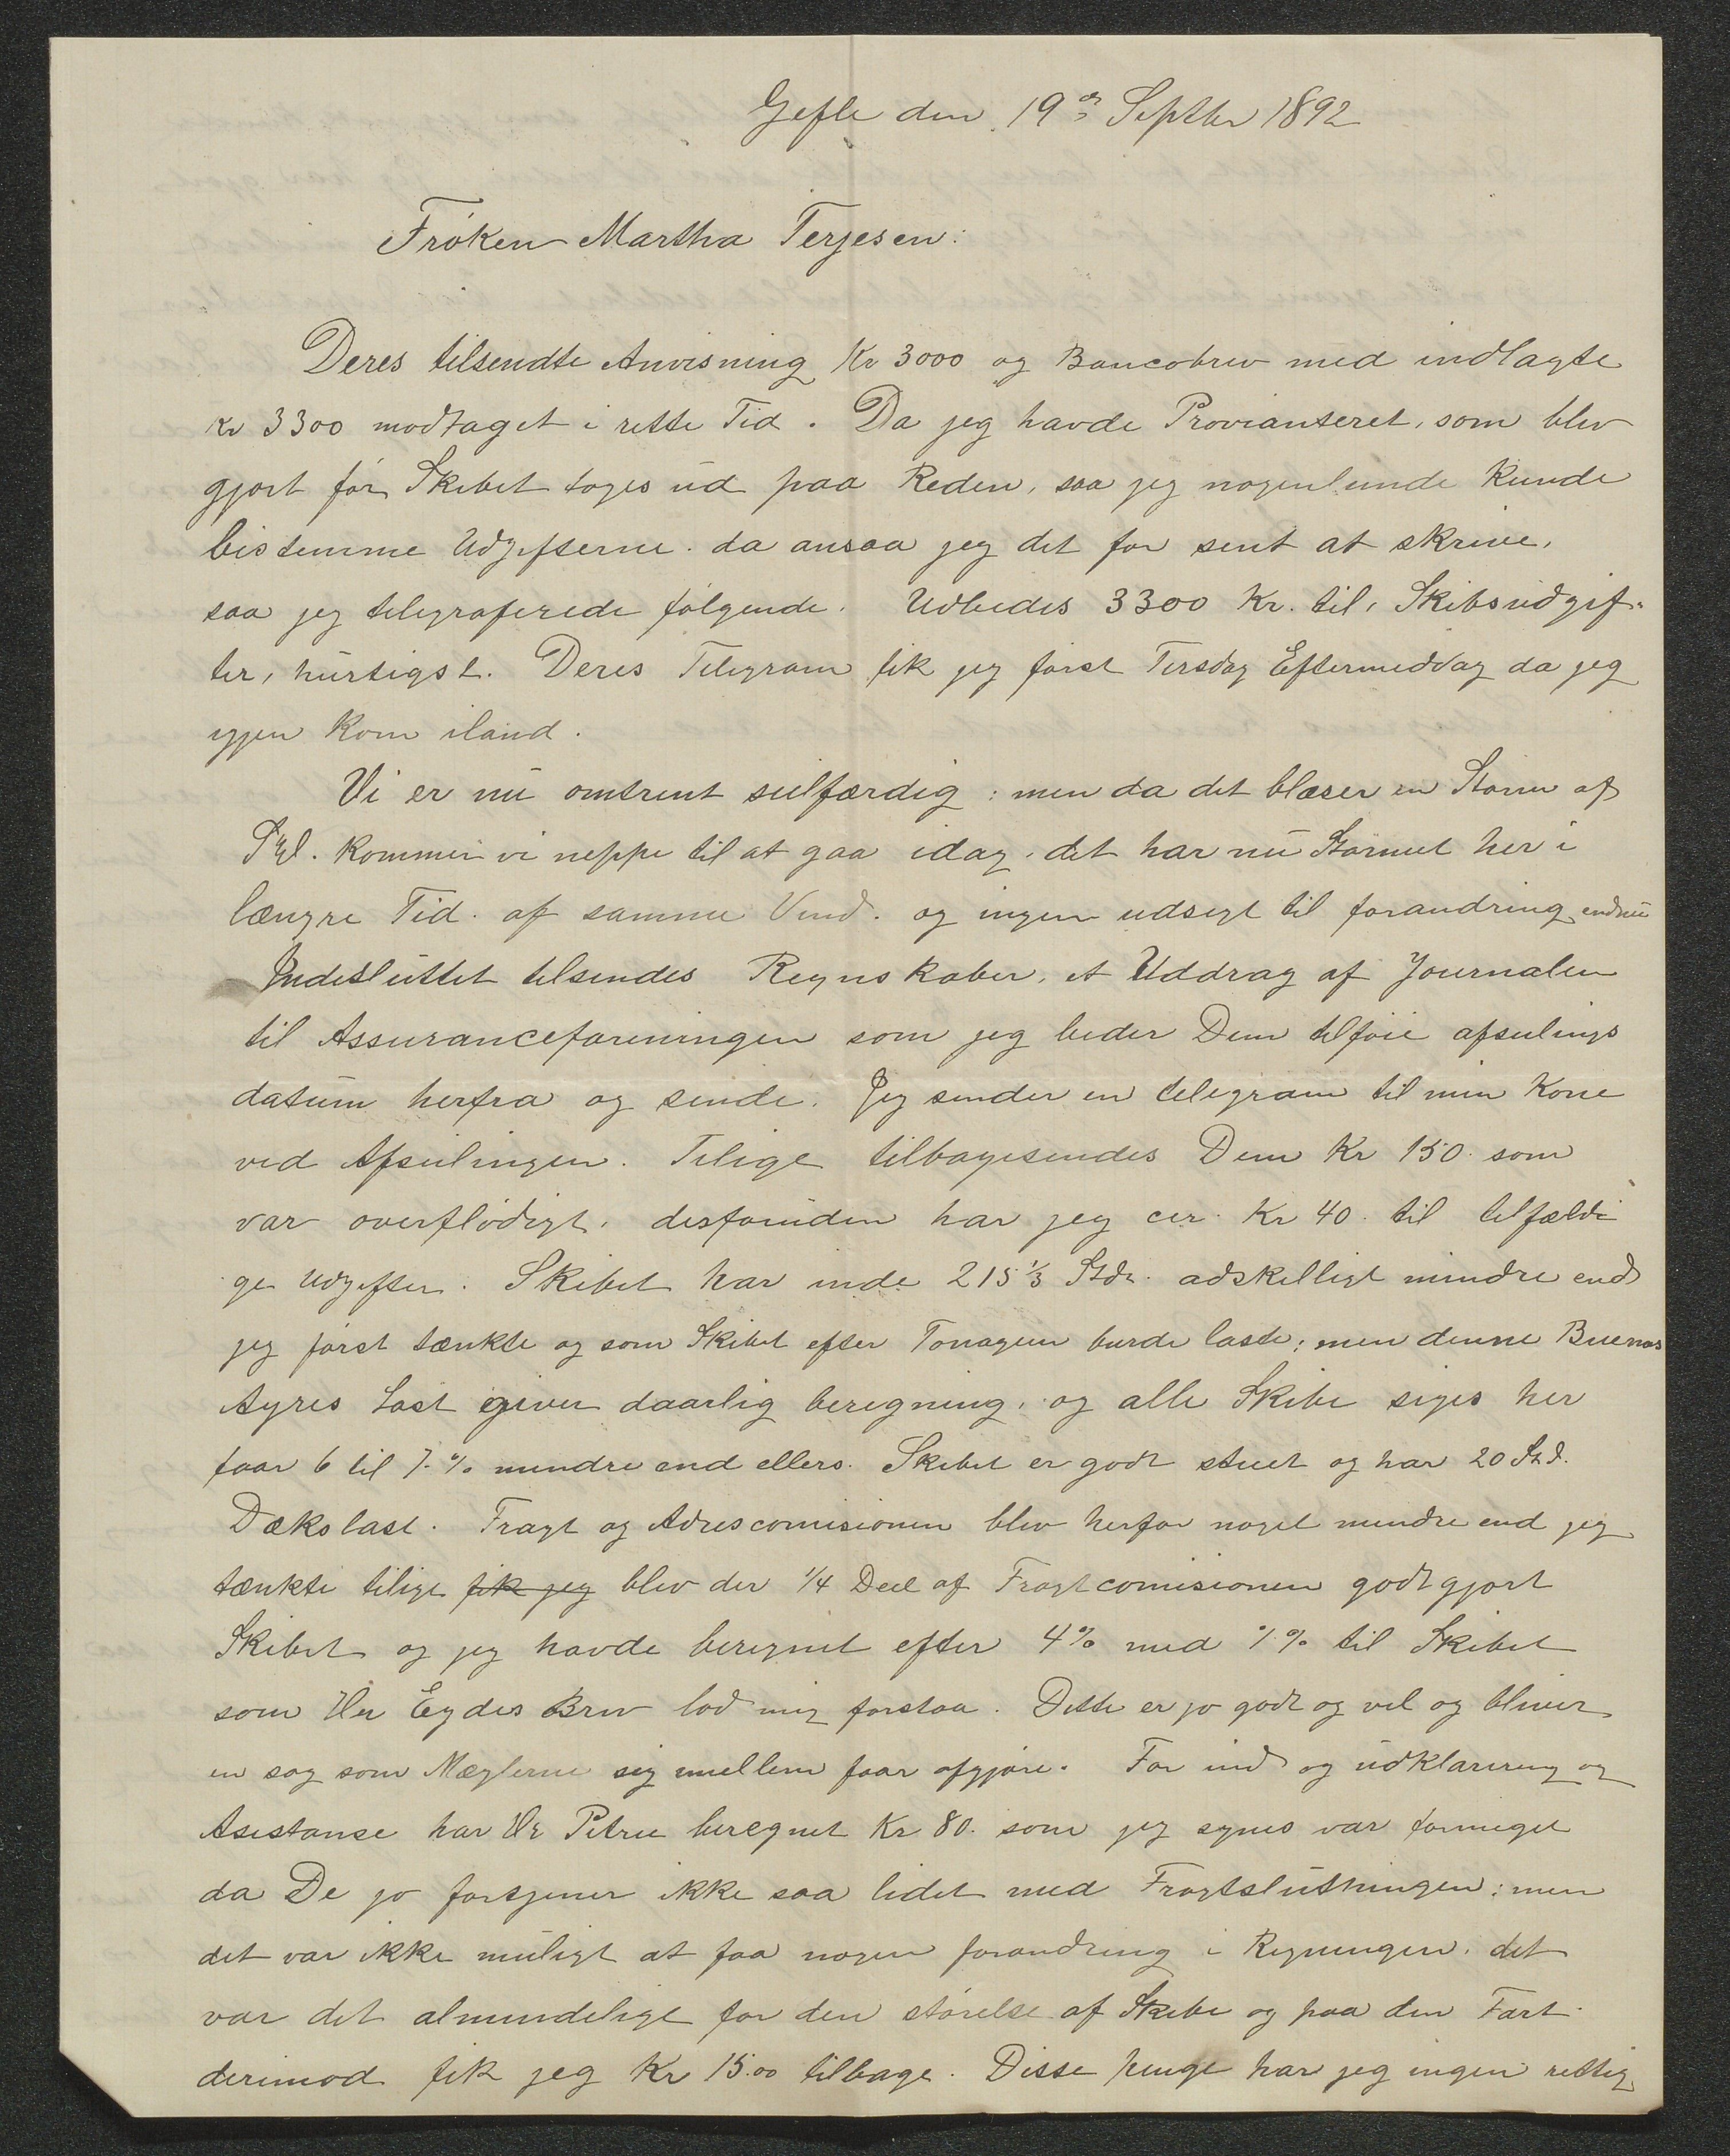 Gefle den 19de Septbr 1892
Frøken Martha Terjesen:
Deres tilsendte Anvisning Kr 3000 og Bancobrev med indlagte
Kr 3300 modtaget i rette Tid. Da jeg havde Provianteret, som blev
gjort før Skibet toges ud paa Reden, saa jeg nogenlunde kunde
bistemme Udgifterne. da ansaa jeg det for sent at skrive,
saa jeg telegraferede følgende. Udbedes 3300 Kr. til, Skibsudgif-
ter, hurtigst. Deres Telegram fik jeg først Tirsdag Eftermeddag da jeg
igjen kom iland.
Vi er nu omtrent seilfærdig: men da det blæser en Storm af
kommer vi neppe til at gaa idag, det har nu Stormet her i
længre Tid. af samme Vind. og ingen udsigt til forandring endnu
Indesluttet tilsendes Regnskaber, et Uddrag af Journalen
til Assuranceforeningen som jeg beder Dem tilføie afseilings
datum herfra og sende. Jeg sender en telegram til min Kone
ved Afseilingen. Tilige tilbagesendes Dem Kr 150. som
var overflødigt, desforuden har jeg cir. Kr 40. til tilfældi
ge Udgifter. Skibet har inde 215 1/3 Stdr. adskilligt mindre end
jeg først tænkte og som Skibet efter Tonagen burde laste; men denne Buenos
Ayres Last giver daarlig beregning, og alle Skibe siges her
faar 6 til 7 % mindre end ellers. Skibet er godt stuet og har 20 Std.
Dækslast. Fragt og Adrescomisionen blev herfor noget mindre end jeg
tænkte tilige fik jeg blev der 1/4 Deel af Fragtcomisionen godtgjort
Skibet og jeg havde beregnet efter 4% med 1% til Skibet
som Hr Eydes Brev lod mig forstaa. Dette er jo godt og vel og bliver
en sag som Mæglerne sig imellem faar afgjøre. For ind og udklarering og
Asistanse har Hr Petrie beregnet Kr 80. som jeg synes var formeget
da De jo fortjener ikke saa lidet med Fragtslutningen; men
det var ikke muligt at faa nogen forandring i Regningen, det
var det almindelige for den størelse af Skibe og paa den Fart
derimod fik jeg Kr 15.00 tilbage. Disse penge har jeg ingen rettig